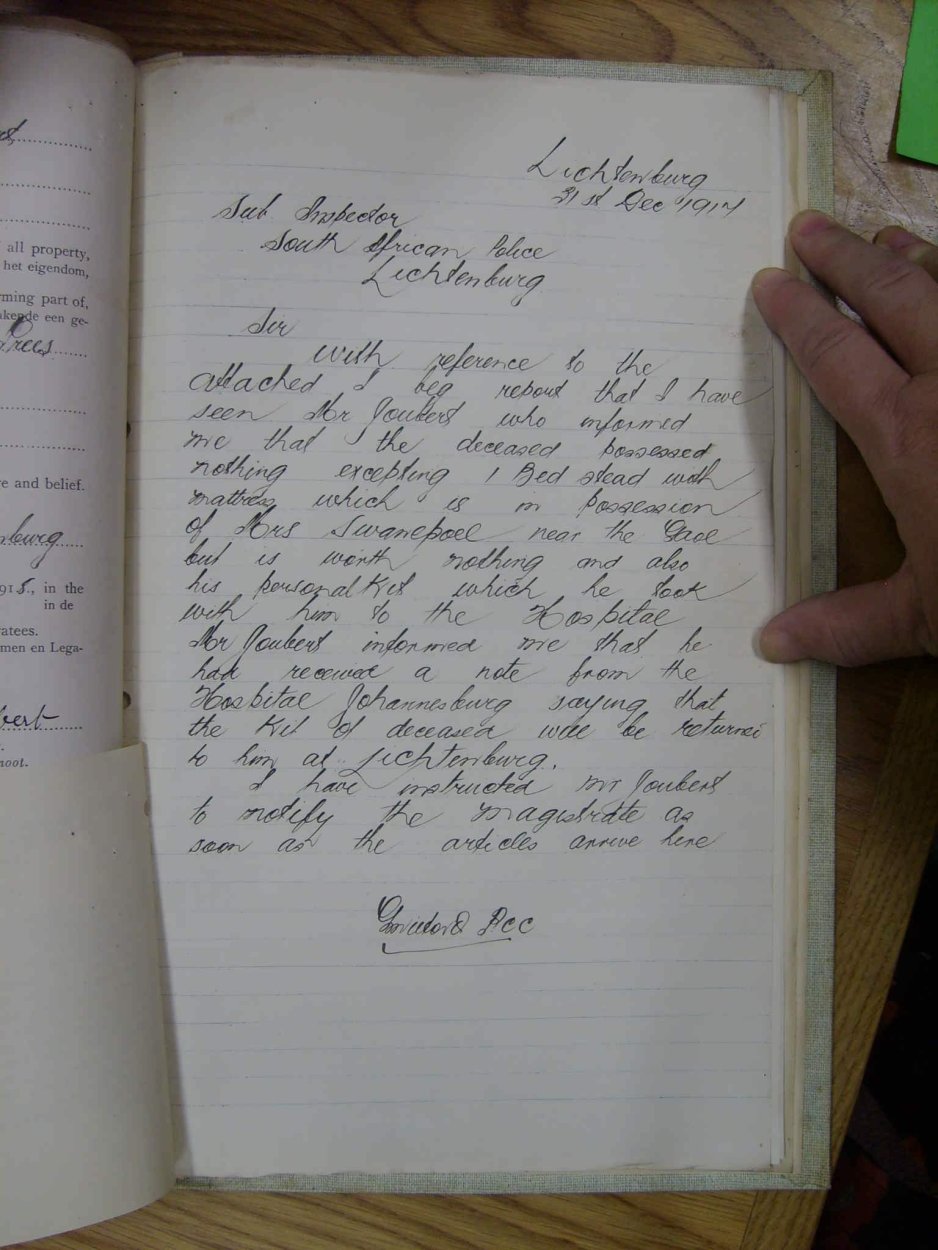 all property,
het eigendom,
rming part of,
akende een ge-
Prees
e and belief.
nburg
915., in the
in de
atees.
men en Lega-
bert
noot.
Lichtenburg
31st Dec 1914
Sub Inspector
South African Police
Lichtenburg
Sir
With reference to the
attached I beg report that I have
seen Mr Joubert who informed
me that the deceased possessed
nothing excepting 1 Bed stead with
mattress which is in possession
of Mrs Swanepoel near the Gaol
but is worth nothing and also
his personal Kit which he took
with him to the Hospital
Mr Joubert informed me that he
had received a note from the
Hospital Johannesburg saying that
the Kit of deceased will be returned
to him at Lichtenburg.
I have instructed Mr Joubert
to notify the Magistrate as
soon as the articles arrive here